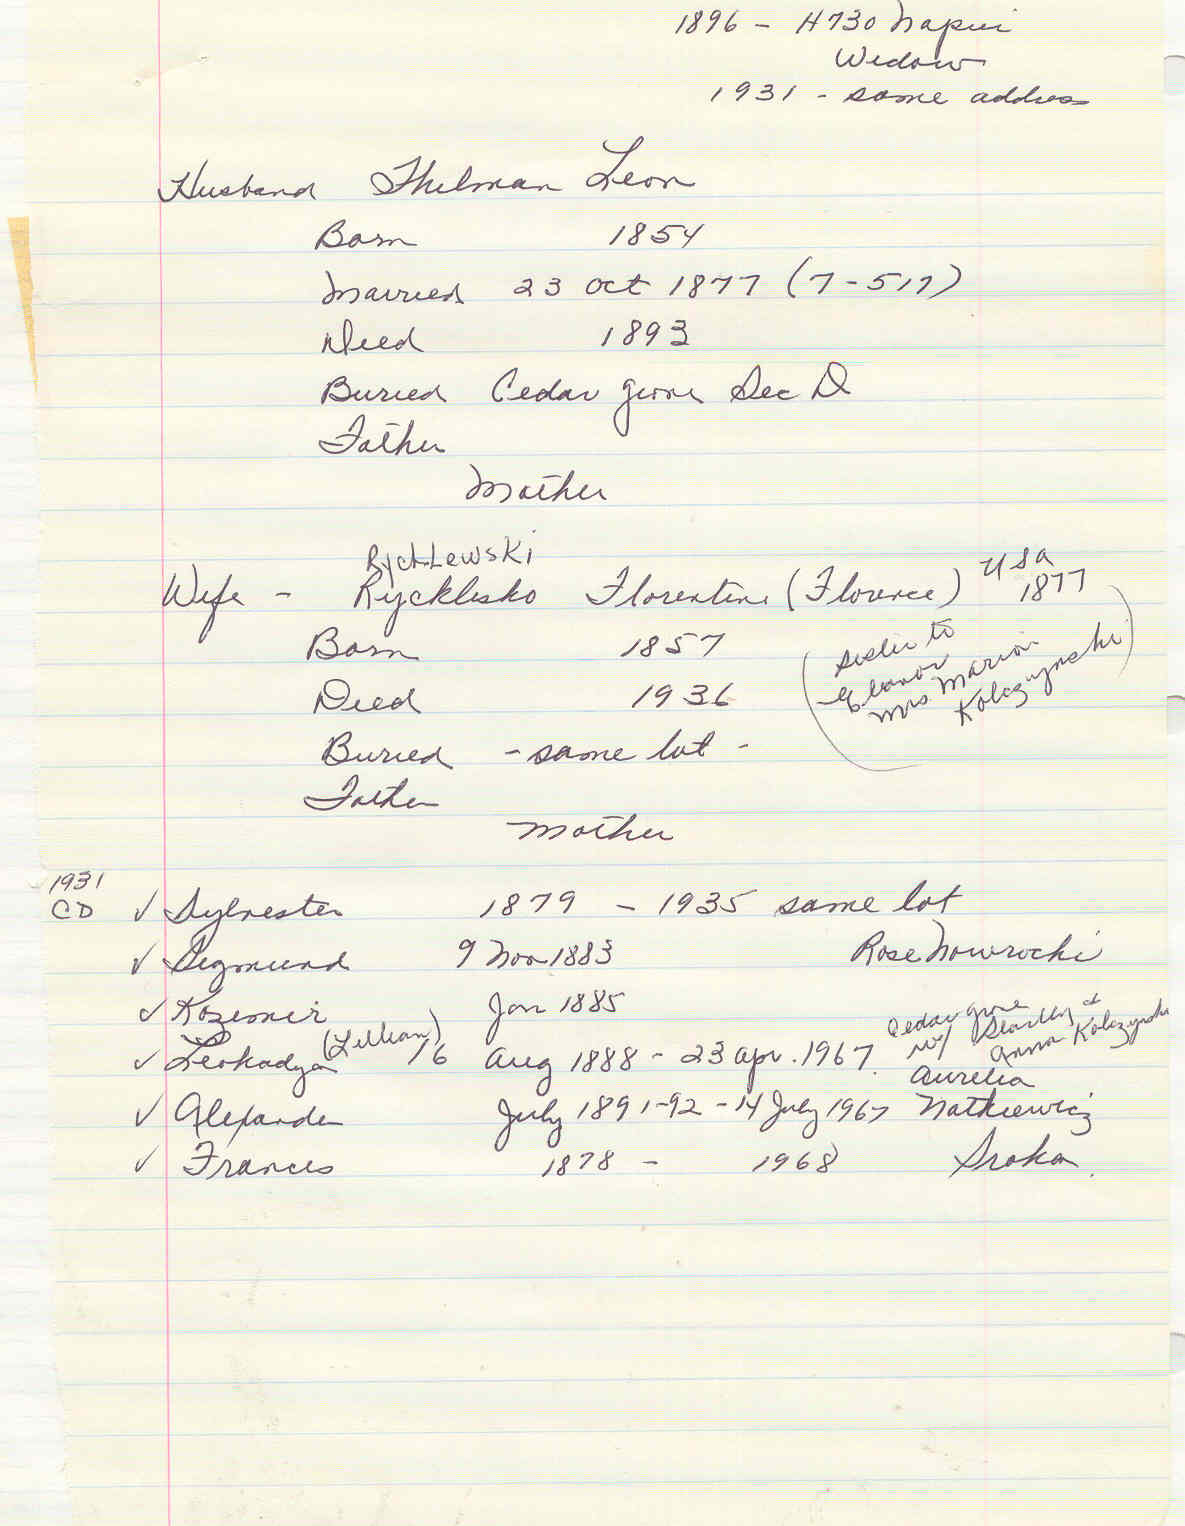 1896 - H730 Napier
Widow
1931 - same address
Husband Thilman Leon
Born 1854
Married 23 Oct 1877 (7-517)
Died 1893
Buried Cedar Grove Sec D
Father
Mother
RychLewski
Wife - Rycklisko Florentine (Florence) USA 1877
Born 1857
(Sister to
Eleanor
Mrs. Marion
Kolczynski)
Died 1936
Buried - same lot -
Father
Mother
1931
CD ✓ Sylvester 1879 - 1935 same lot
✓ Sigmund 9 Nov 1883 Rose Nowrocki
✓ Kozimir Jan 1885
✓ Leokadya (Lillian) 16 Aug 1888 - 23 Apr. 1967. Cedar Grove w/ & Anna Kolczynski
Aurelia
✓ Alexander July 1891-92 - 14 July 1967 Natkiewicz
✓ Frances 1878 - 1968 Sroka